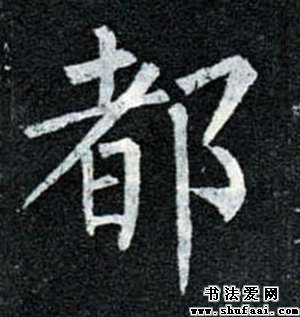 都
书法爱网
www.shufaai.com